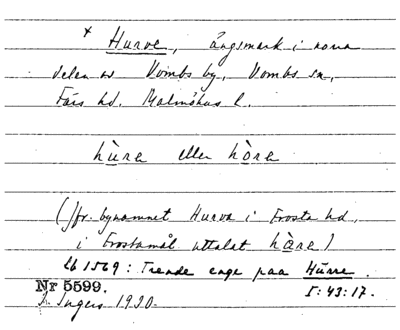 x Hurve, ängsmark i norra
delen av Vombs by, Vombs sn,
Färs hd. Malmöhus l.
hùra eller hòra
(Jfr. bynamnet Hurva i Frosta hd,
i Frostamål uttalat hàra)
Lb 1569: Trende enge paa Hürre.
Nr 5599. I: 43: 17.
I. Ingers 1930.